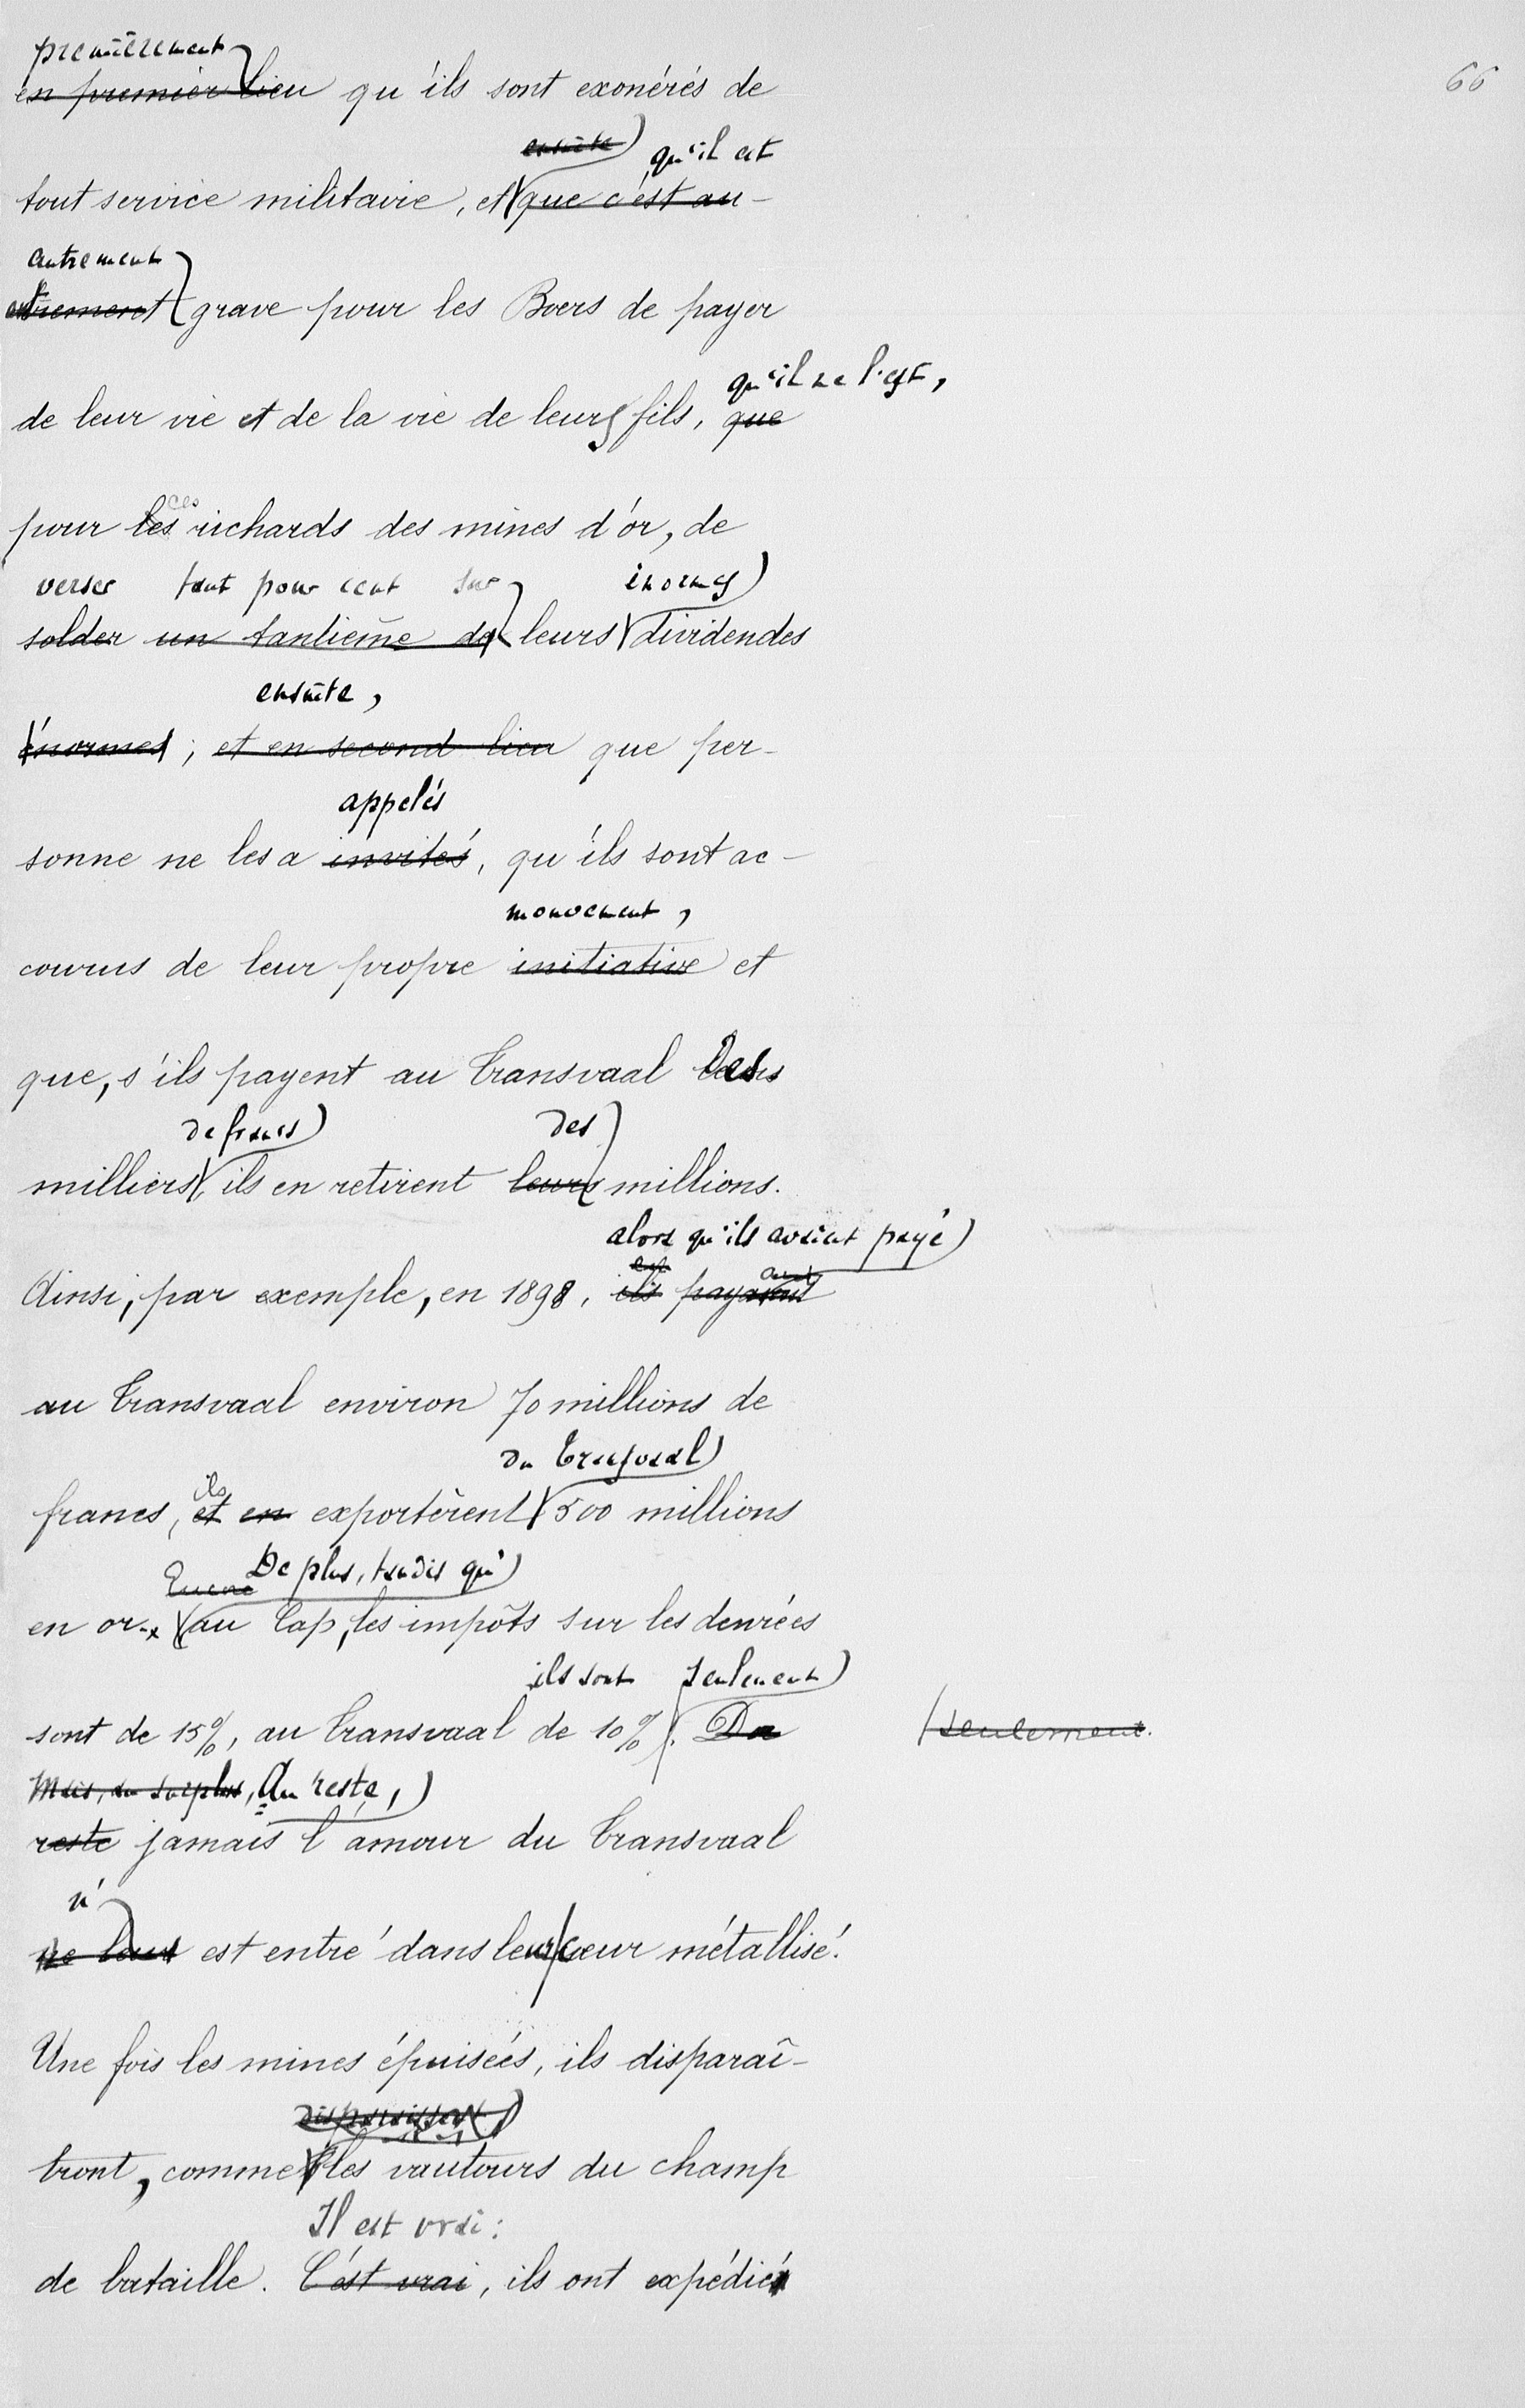 premièrement
66
en premier lieu qu'ils sont exonérés de
ensuite qu'il est
tout service militaire, et que c'est au-
autrement
trement grave pour les Boers de payer
qu'il ne l'est,
de leur vie et de la vie de leurs fils, que
ces
pour les richards des mines d'or, de
verser tant pour cent sur énormes
solder un tantième de leurs dividendes
ensuite,
énormes ; et en second lieu que per-
appelés
sonne ne les a invités, qu'ils sont ac-
mouvement,
courus de leur propre initiative et
que, s'ils payent au Transvaal des
de francs des
milliers, ils en retirent leurs millions.
alors qu'ils avaient payé
Ainsi, par exemple, en 1898, ils payaient
au Transvaal environ 70 millions de
du Transvaal
francs, ils et en exportèrent 500 millions
Encore De plus, tandis qu'
en or. au Cap, les impôts sur les denrées
ils sont seulement
sont de 15%, au Transvaal de 10%. Du
seulement.
Mais, du surplus, Au reste,
reste jamais l'amour du Transvaal
n'
ne leur est entré dans leur cœur métallisé.
Une fois les mines épuisées, ils disparaî-
disparaissent
tront, comme les vautours du champ
Il est vrai :
de bataille. C'est vrai, ils ont expédié